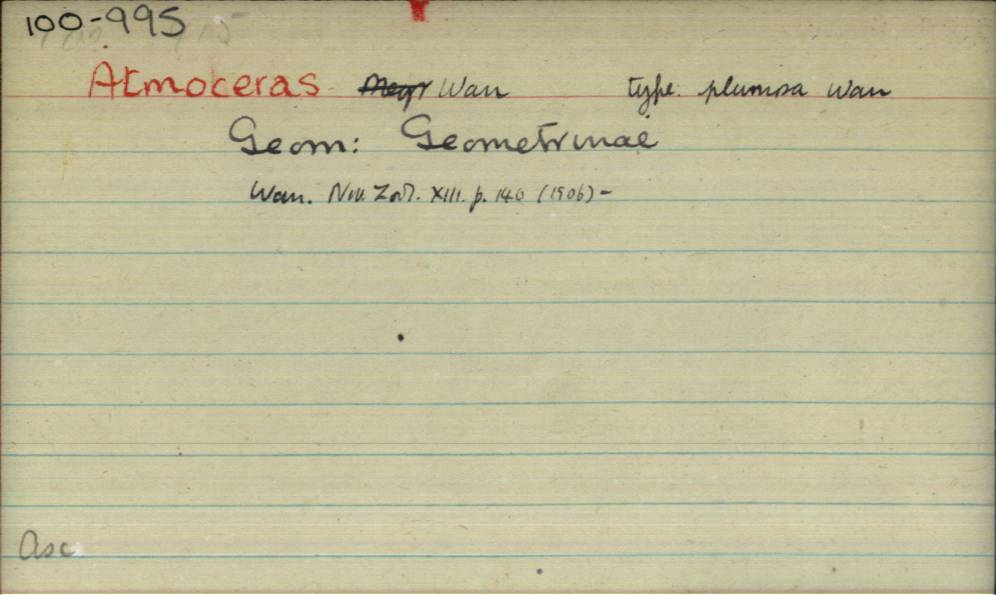 100-995
Atmoceras Wan type. plumosa Wan
Geom: Geometrinae
Wan. Nov. Zool. XIII. p. 140 (1906) -
asc